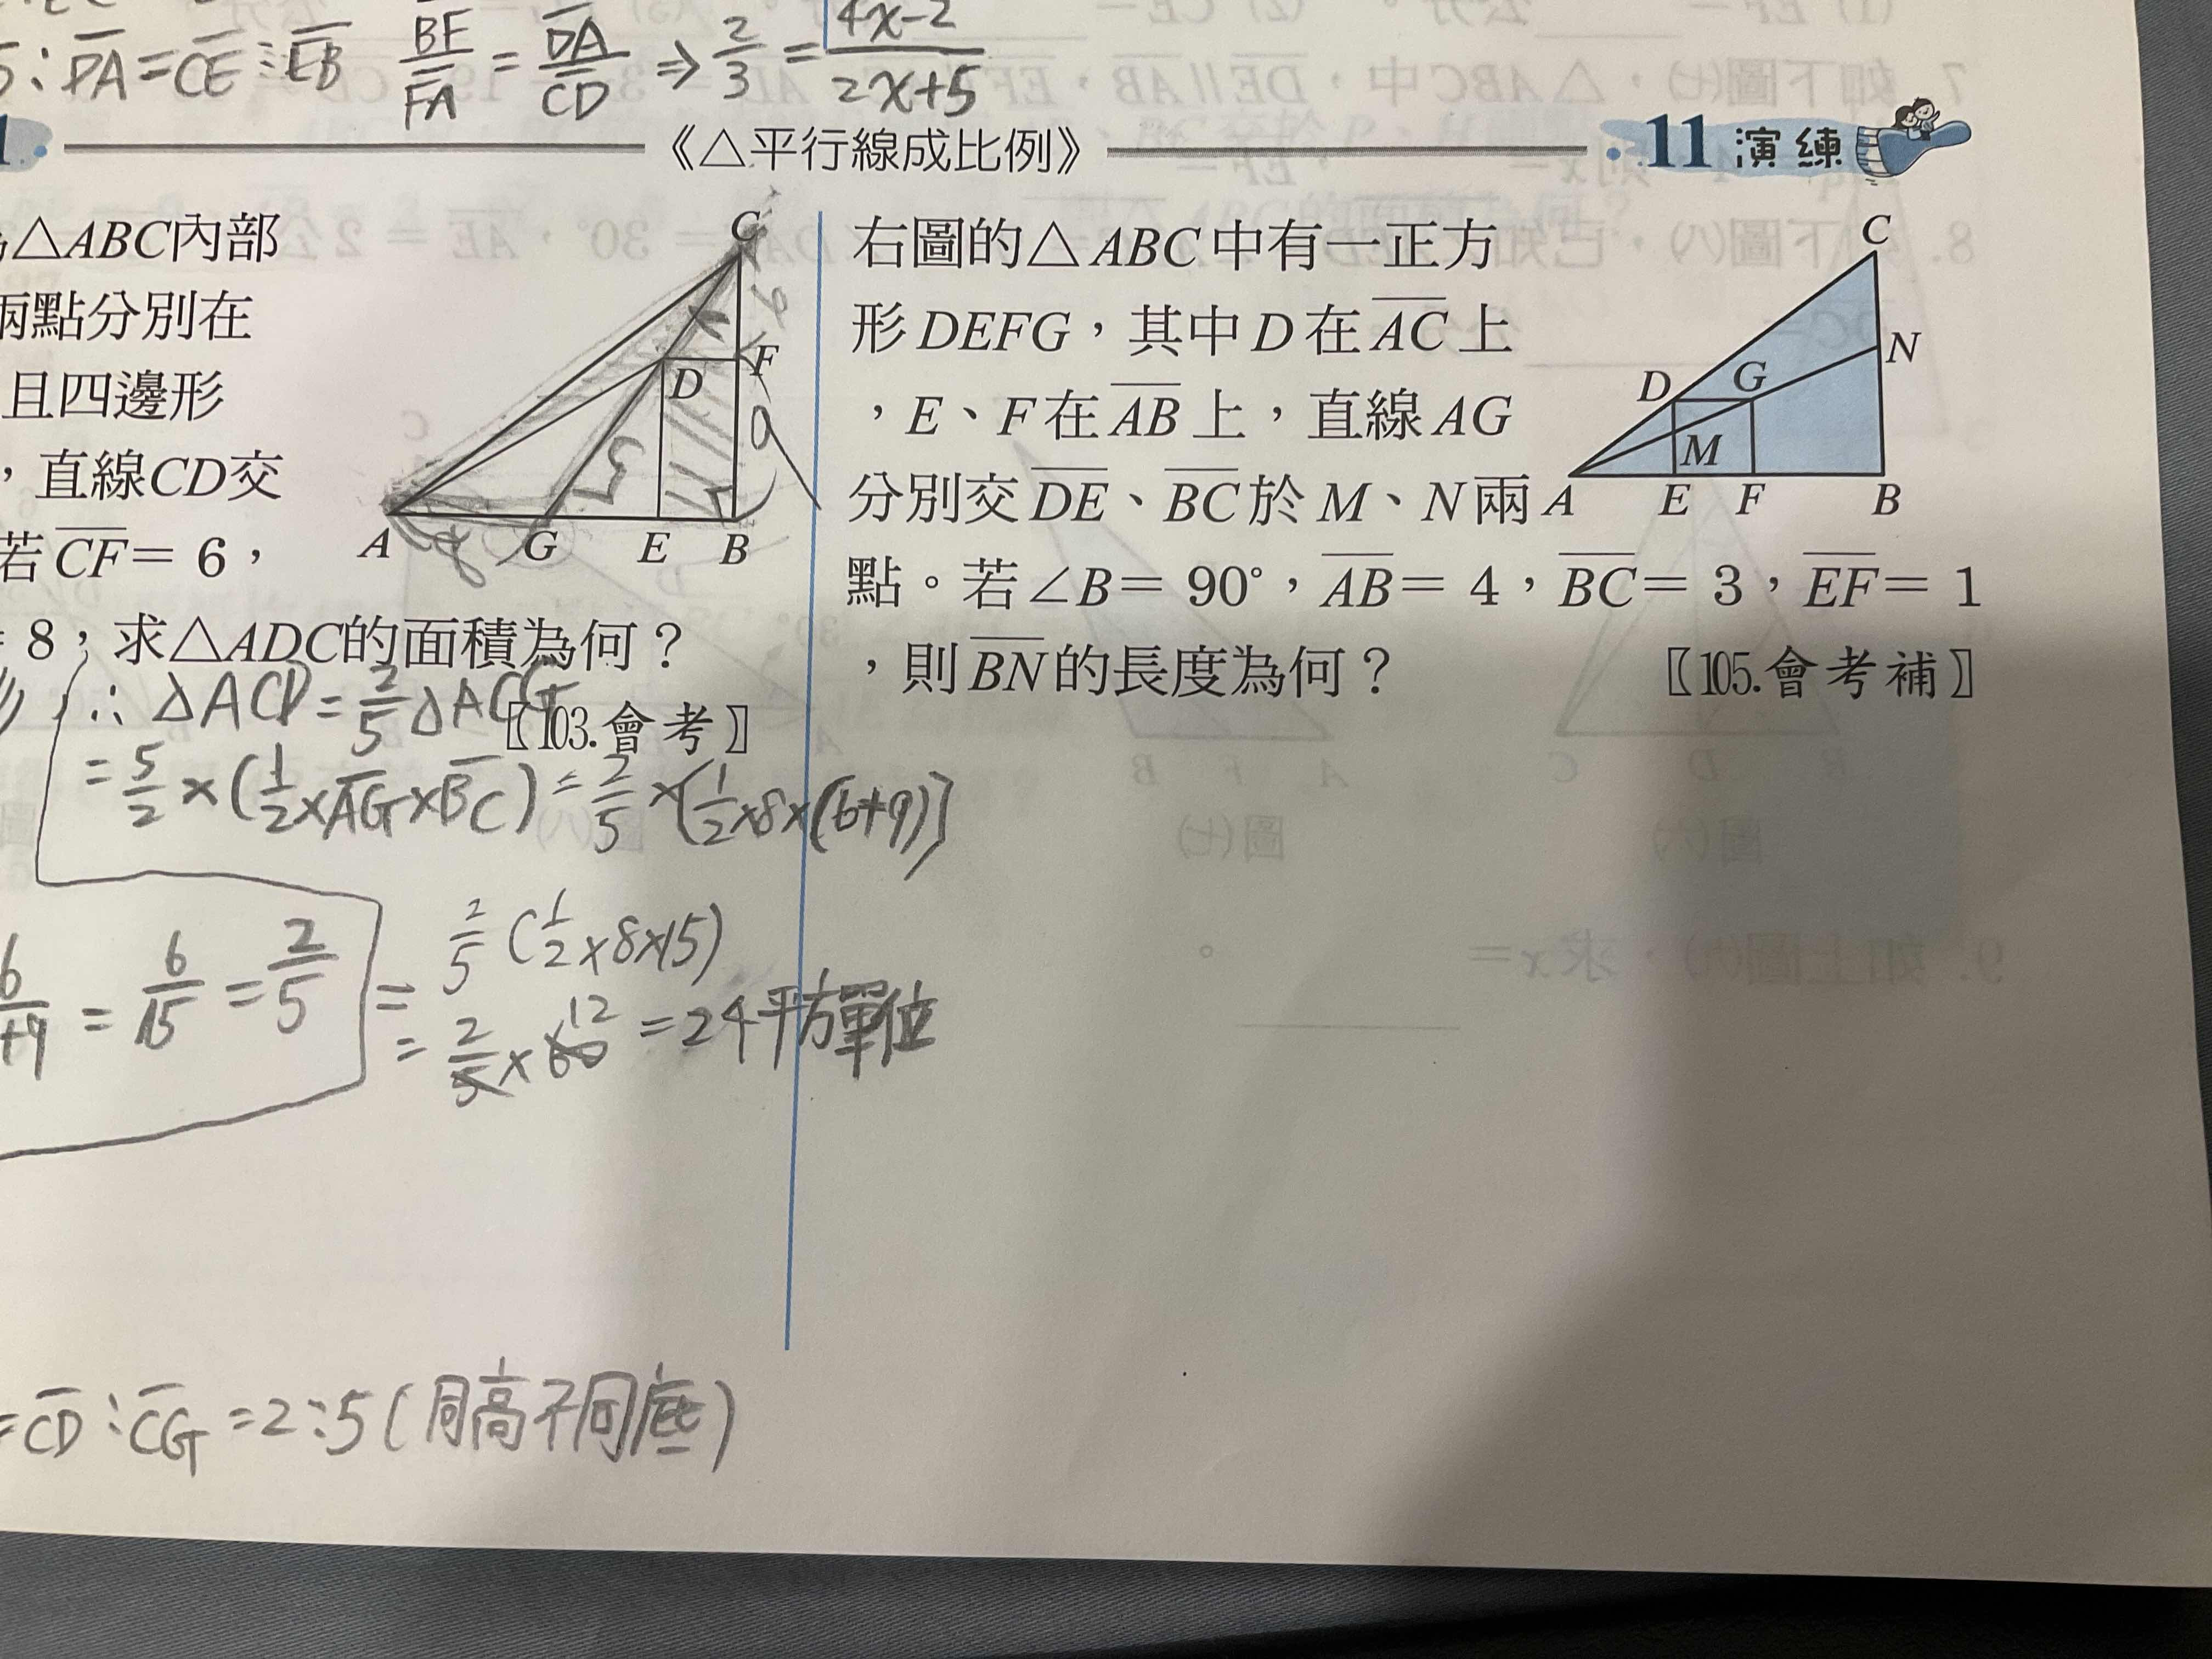 :PA=CE:EB BE/FA = DA/CD ⇒ 2/3 = 4x-2/2x+5
《△平行線成比例》
△ABC內部
兩點分別在
且四邊形
，直線CD交
若CF= 6，
= 8，求△ADC的面積為何？
〖103.會考〗
C
F
D
A G E B
4
9
8
∴ △ACD=2/5△ACG
=5/2×(1/2×AG×BC)=2/5×[1/2×8×(6+9)]
6/+9 = 6/15 = 2/5
= 2/5 (1/2×8×15)
= 2/5×60 12 =24平方單位
=CD:CG=2:5(同高不同底)
11 演練
右圖的△ABC中有一正方
形DEFG，其中D在AC上
，E、F在AB上，直線AG
分別交DE、BC於M、N兩
點。若∠B= 90°，AB= 4，BC= 3，EF= 1
，則BN的長度為何？
〖105.會考補〗
C
N
D G
M
A E F B